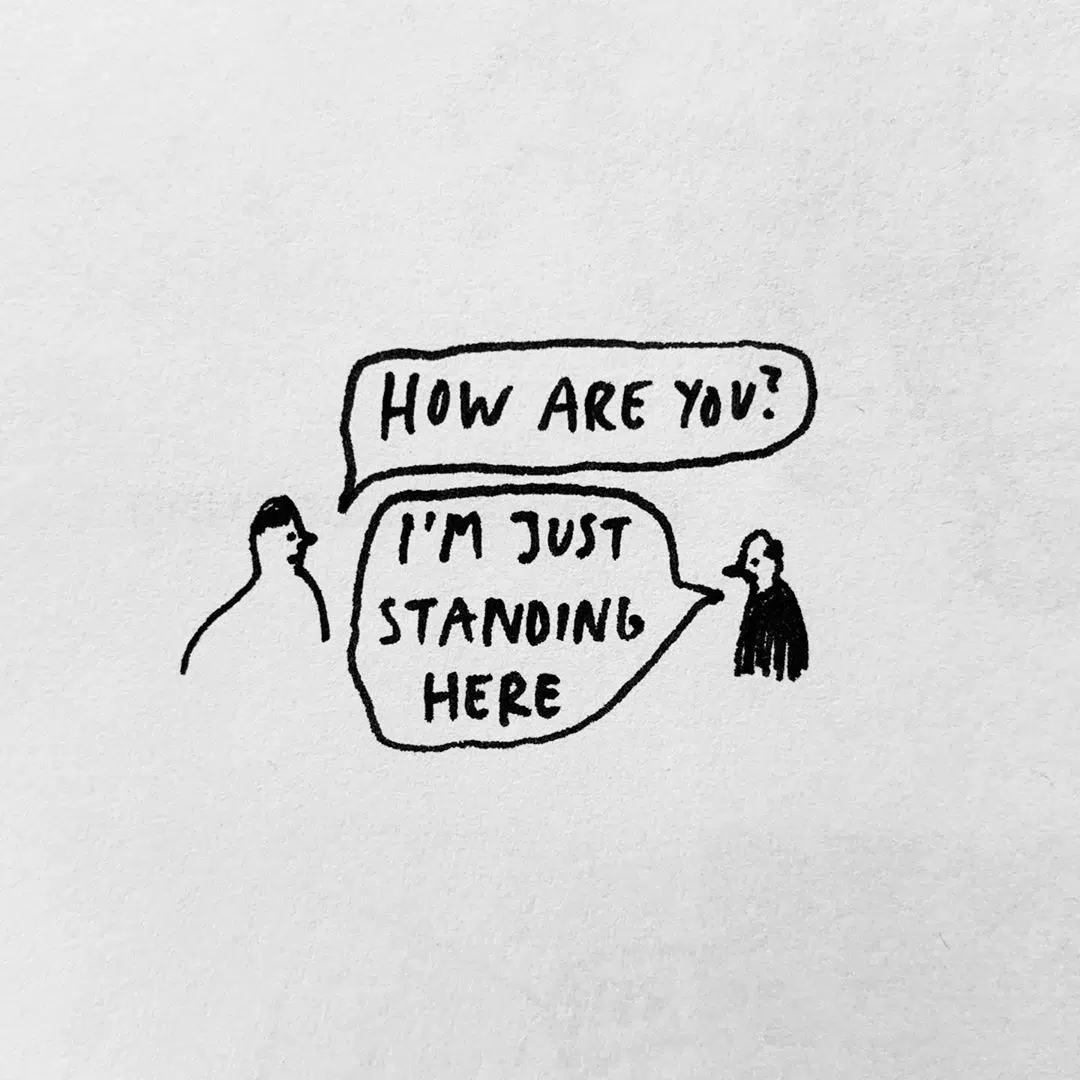 HOW ARE YOU?
I'M JUST
STANDING
HERE